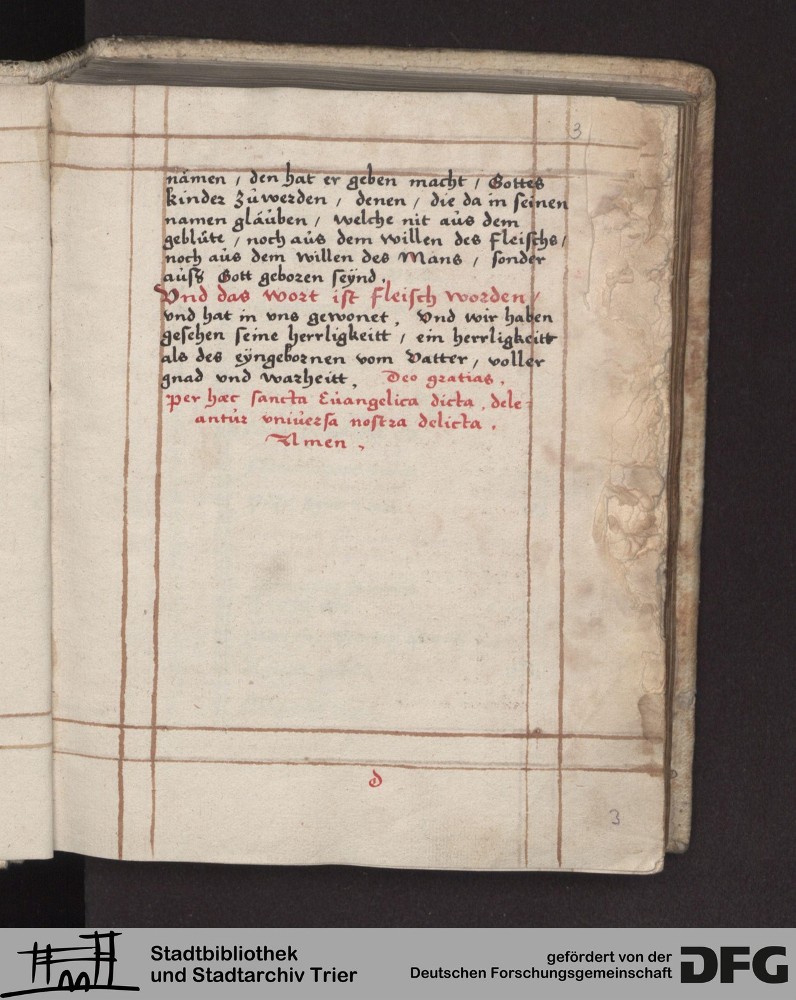 3
námen / den hat er geben macht / Gottes
kinder zů werden / denen / die da in seinen
namen gläuben / welche nit aůs dem
geblüte / noch aůs dem willen des fleischs /
noch aůs dem willen des Mans / sonder
auſs Gott geboren seÿnd.
Vnd das wort ist fleisch worden /
vnd hat in vns gewonet, Vnd wir haben
gesehen seine herrligkeitt / ein herrligkeitt
als des eÿngebornen vom Vatter / voller
gnad vnd warheitt, Deo gratias.
Per hæc sancta Eůangelica dicta, dele=
antůr vniůersa nostra delicta.
Amen,
d
3
Stadtbibliothek
und Stadtarchiv Trier
gefördert von der
Deutschen Forschungsgemeinschaft
DFG